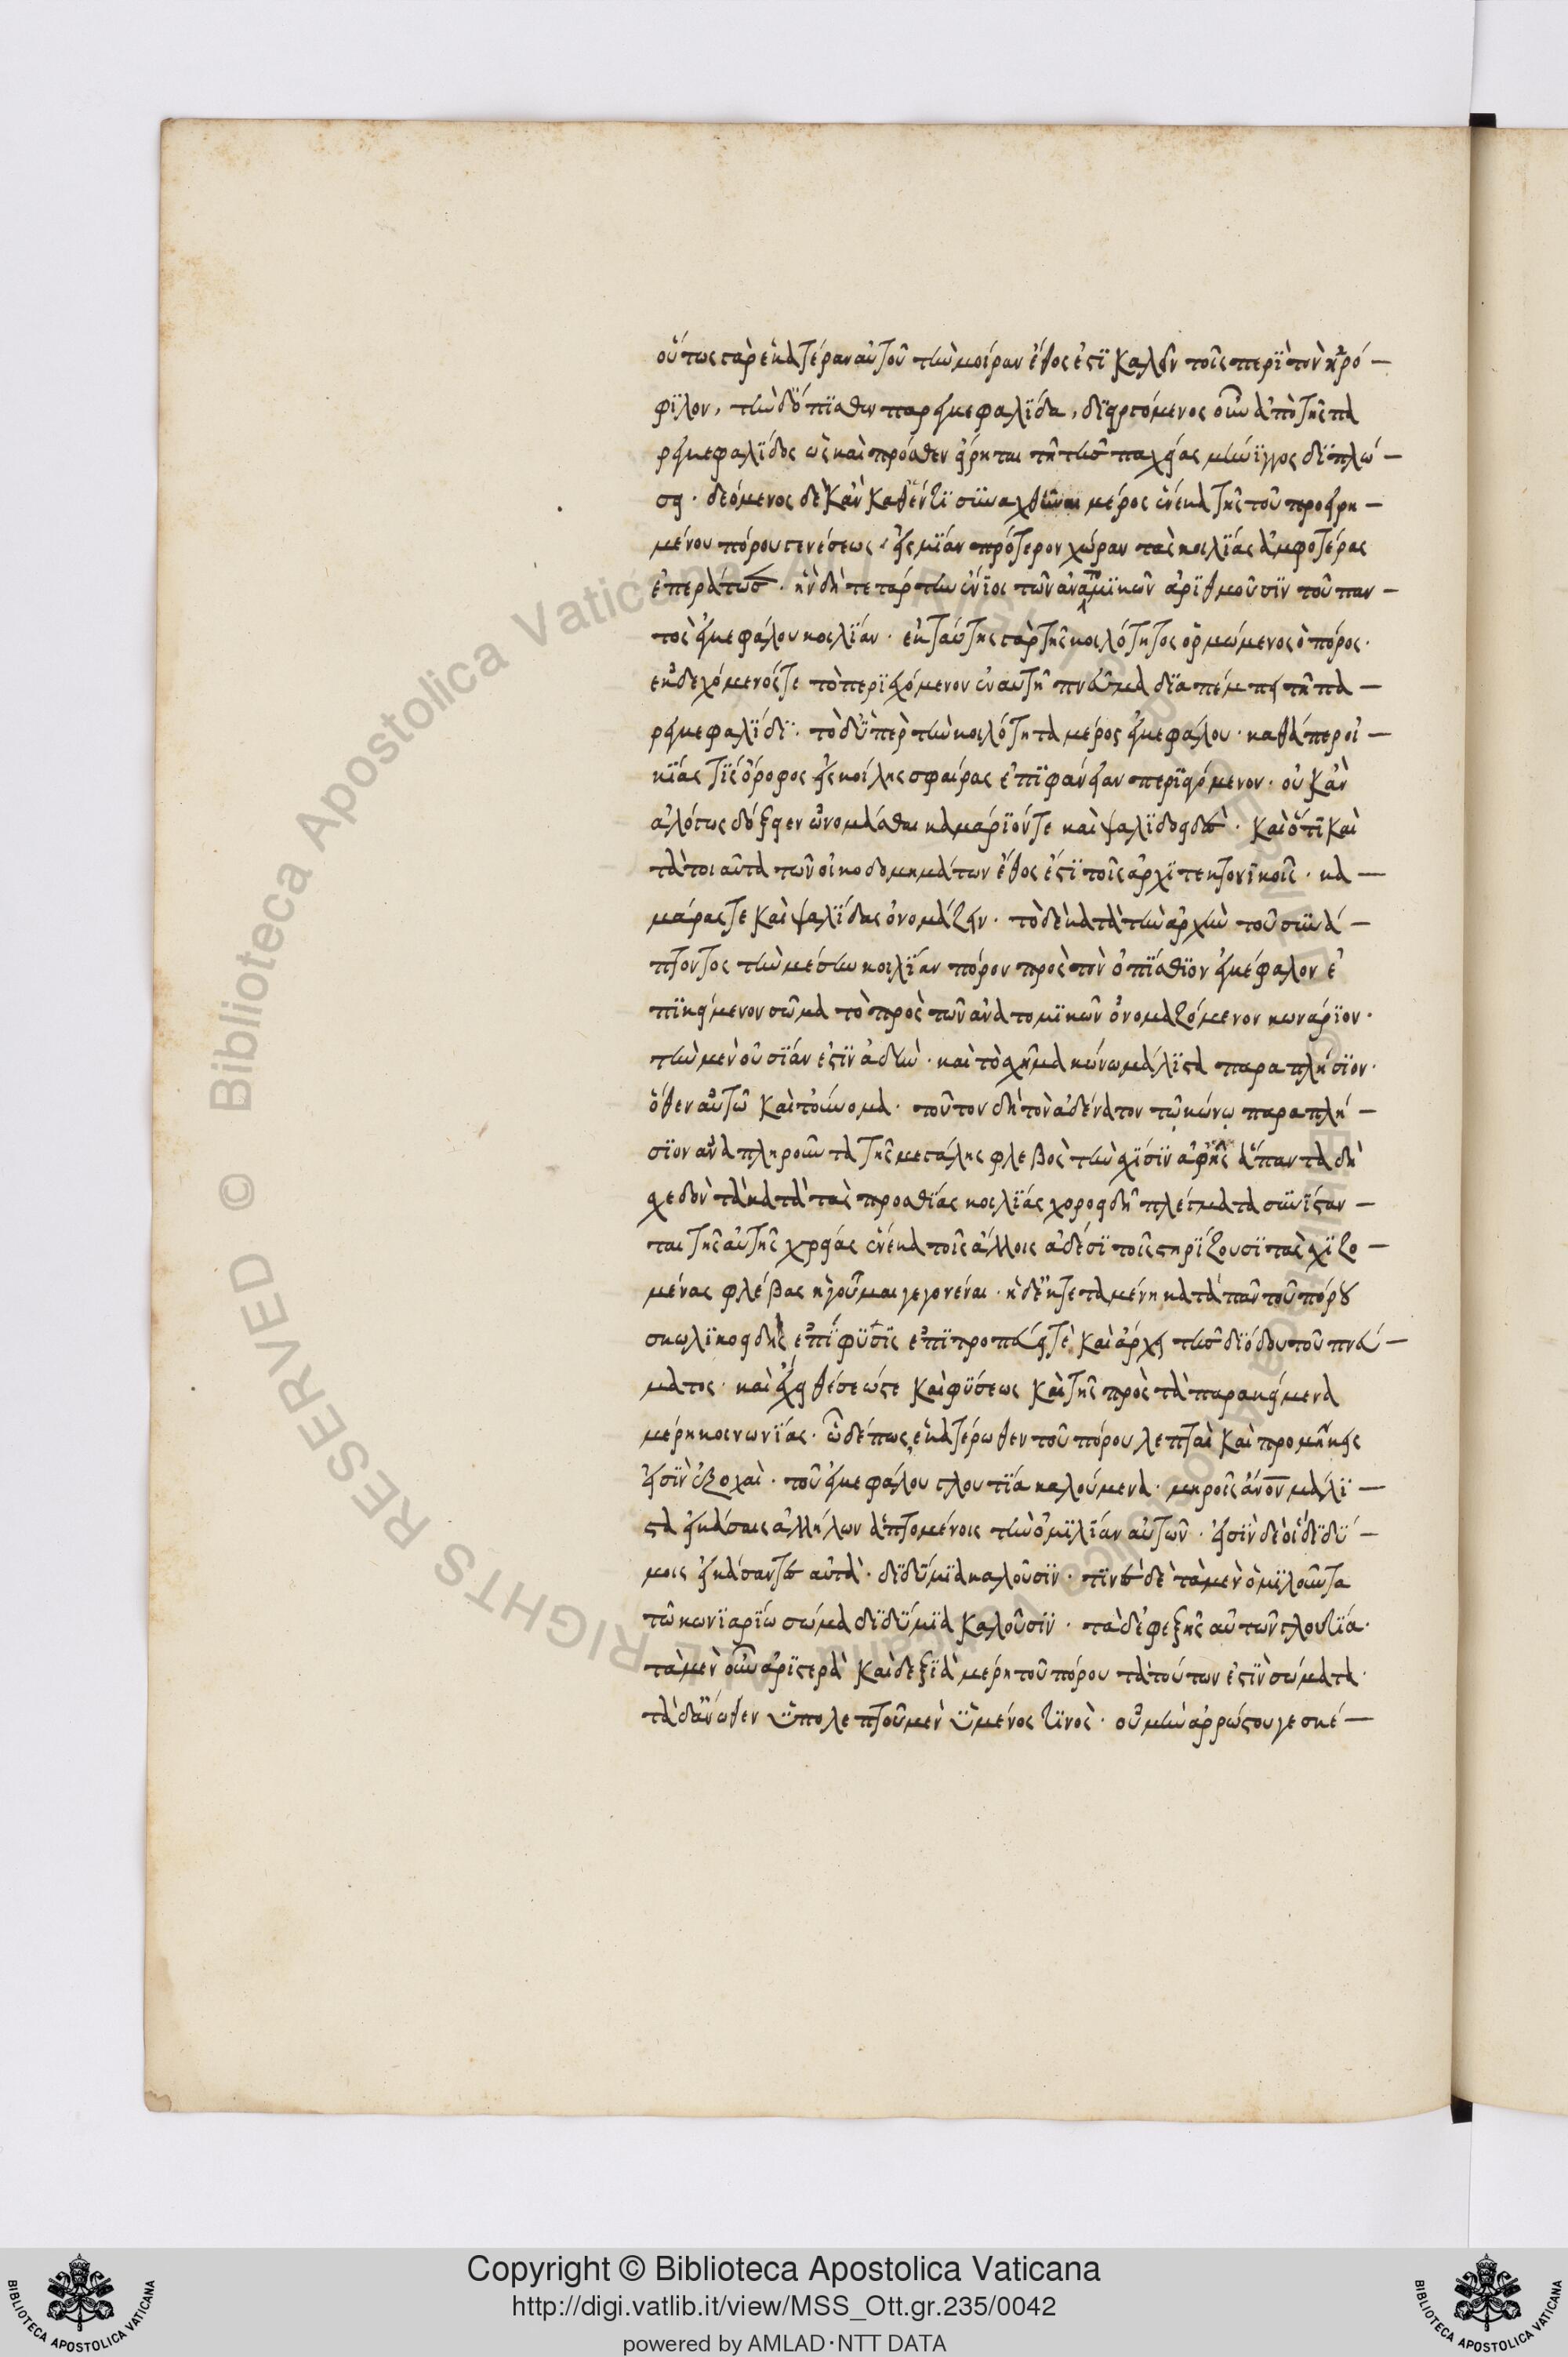 οὕτως γὰρ ἑκατέραν αὐτοῦ τὴν μοίραν ἔθος ἐστὶ καλεῖν τοῖς περὶ τὸν ἡρό—
φιλον, τὴν δ' ὄπισθεν παρεγκεφαλίδα, διειργόμενος οὖν ἀπὸ τῆς πα
ρεγκεφαλίδος ὡς καὶ πρόσθεν εἴρηται τῇ τῆς παχείας μήνιγγος διπλώ—
σει· δεόμενος δὲ κἂν καθέν τι συναχθῆναι μέρος ἕνεκα τῆς τοῦ προειρη—
μένου πόρου γενέσεως· εἰς μίαν πρότερον χώραν τὰς κοιλίας ἀμφοτέρας
ἐπεράτωσε· ἣν δὴ τετάρτην ἔνιοι τῶν ἀνατομικῶν ἀριθμοῦσιν τοῦ παν—
τὸς ἐγκεφάλου κοιλίαν· ἐκ ταύτης γὰρ τῆς κοιλότητος ὁρμώμενος ὁ πόρος·
ἐκδεχόμενός τε τὸ περιεχόμενον ἐν αυτῇ πνεῦμα διαπέμπει τῇ πα—
ρεγκεφαλίδι· τὸ δ' ὑπὲρ τὴν κοιλότητα μέρος ἐγκεφάλου· καθάπερ οἰ—
κίας τις ὄροφος εἰς κοίλης σφαίρας ἐπιφάνειαν περιηγόμενον· οὐκ ἀν
αλόγως δόξειεν ὠνομάσθαι καμάριόν τε καὶ ψαλιδοειδὲς· καὶ ὅτι καὶ
τὰ τοιαῦτα τῶν οἰκοδομημάτων ἔθος ἐστὶ τοῖς ἀρχιτεκτονικοῖς· κα—
μάρας τε καὶ ψαλίδας ὀνομάζειν· τὸ δὲ κατὰ τὴν ἀρχὴν τοῦ συνά—
πτοντος τὴν μέσην κοιλίαν πόρον πρὸς τὸν ὀπίσθιον ἐγκέφαλον ἐ
πικείμενον σῶμα τὸ πρὸς τῶν ἀνατομικῶν ὀνομαζόμενον κωνάριον·
τὴν μὲν οὐσίαν ἐστὶν ἀδὴν· καὶ τὸ σχῆμα κώνω μάλιστα παραπλήσιον·
ὅθεν αὐτῷ καὶ τοὔνομα· τοῦτον δὴ τὸν ἀδένα τὸν τῷ κώνῳ παραπλή—
σιον ἀναπληροῦντα τῆς μεγάλης φλεβὸς τὴν σχίσιν ἀφ' ἧς ἅπαντα δὴ
σχεδὸν τὰ κατὰ τὰς προσθίας κοιλίας χοροειδῆ πλέγματα συνίσταν—
ται τῆς αὐτῆς χρείας ἕνεκα τοῖς ἄλλοις ἀδέσι τοῖς στηρίζουσι τὰς σχιζο—
μένας φλέβας ἡγοῦμαι γεγονέναι· ἡ δ' ἐκτεταμένη κατὰ πᾶν τοῦ πόρου
σκωλικοειδὴς ἐπίφυσις ἐπιπροπωματίζει τε καὶ ἄρχει τῆς διόδου τοῦ πνεύ—
ματος· καὶ ἔχει θέσεώς τε καὶ φύσεως καὶ τῆς πρὸς τὰ παρακείμενα
μέρη κοινωνίας· ὧδέ πως, ἑκατέρωθεν τοῦ πόρου λεπταὶ καὶ προμήκεις
εἰσὶν ἐξοχαὶ· τοῦ ἐγκεφάλου γλουτία καλούμενα· μηροῖς ἀνθρώπων μάλι—
στα εἰκάσαις ἀλλήλων ἁπτομένοις τὴν ὁμιλίαν αὐτῶν· εἰσὶν δὲ οἳ διδύ—
μοις εἰκάσαντες αὐτὰ· διδύμια καλοῦσιν· τινὲς δὲ τὰ μὲν ὁμιλοῦντα
τῷ κωνιαρίω σώμα διδύμια καλοῦσιν· τὰ δ' ἐφεξῆς αὐτῶν γλουτία·
τὰ μὲν οὖν ἀριστερὰ καὶ δεξιὰ μέρη τοῦ πόρου τὰ τούτων ἐστὶν σώματα·
τὰ δ' ἄνωθεν ὑπὸ λεπτοῦ μὲν ὑμένος τινὸς· οὐ μὴν ἀρρώστου γε σκέ—
Copyright © Biblioteca Apostolica Vaticana
http://digi.vatlib.it/view/MSS_Ott.gr.235/0042
powered by AMLAD·NTT DATA